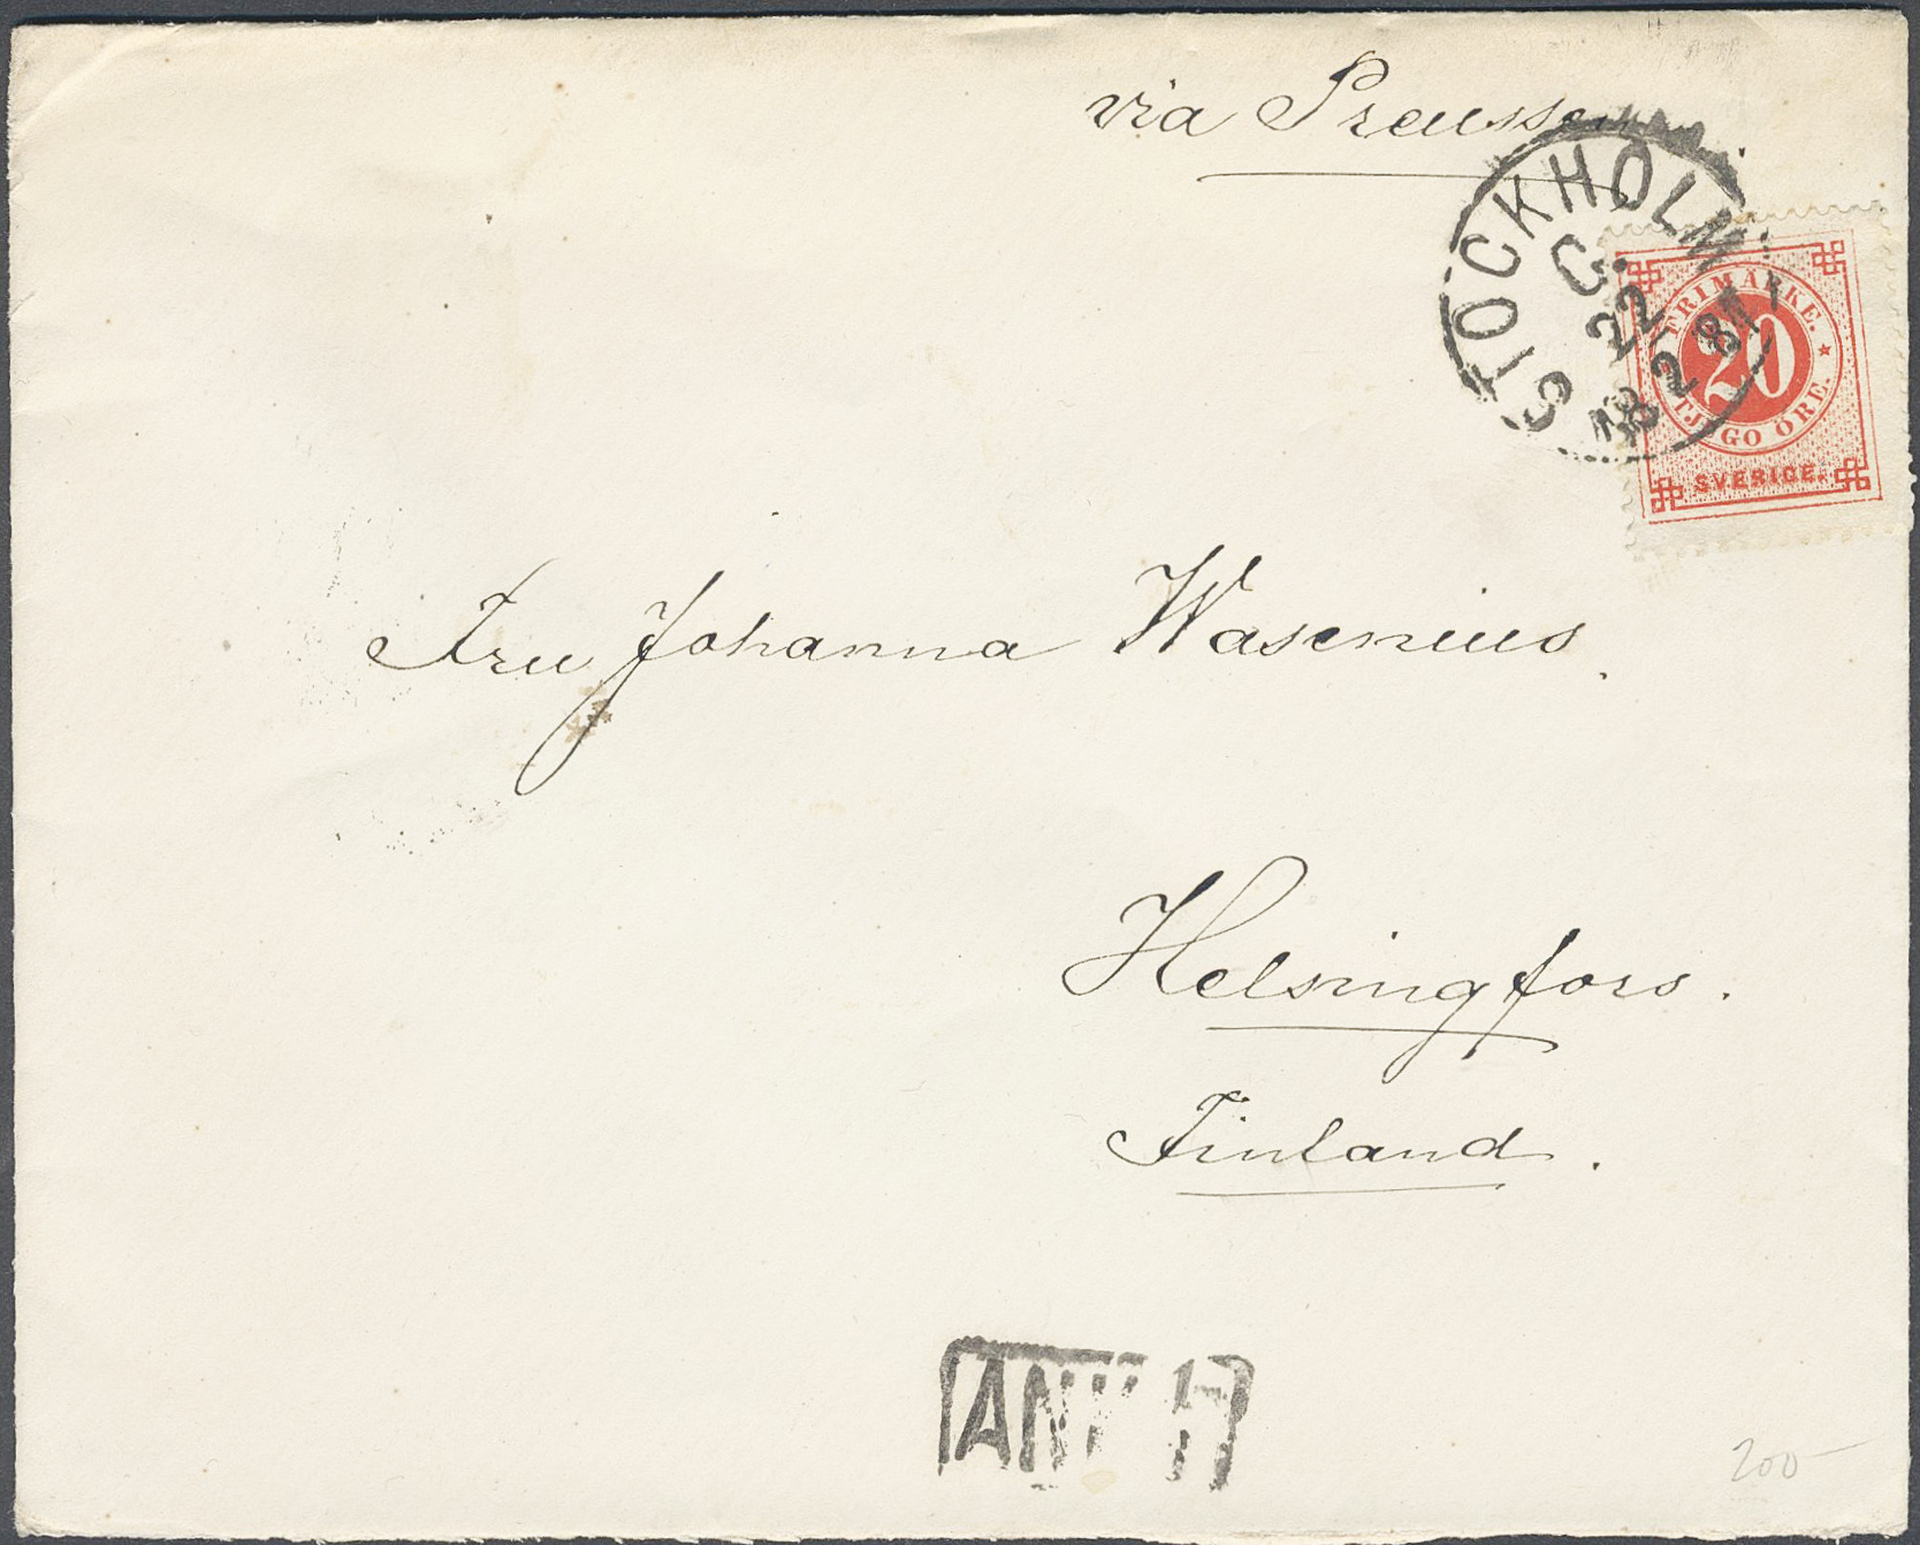 via Preussen.
STOCKHOLM
C.
22
2 81
FRIMÄRKE.
20
TJUGO ÖRE.
SVERIGE.
Fru Johanna Wasenius.
Helsingfors.
Finland.
ANK
200-